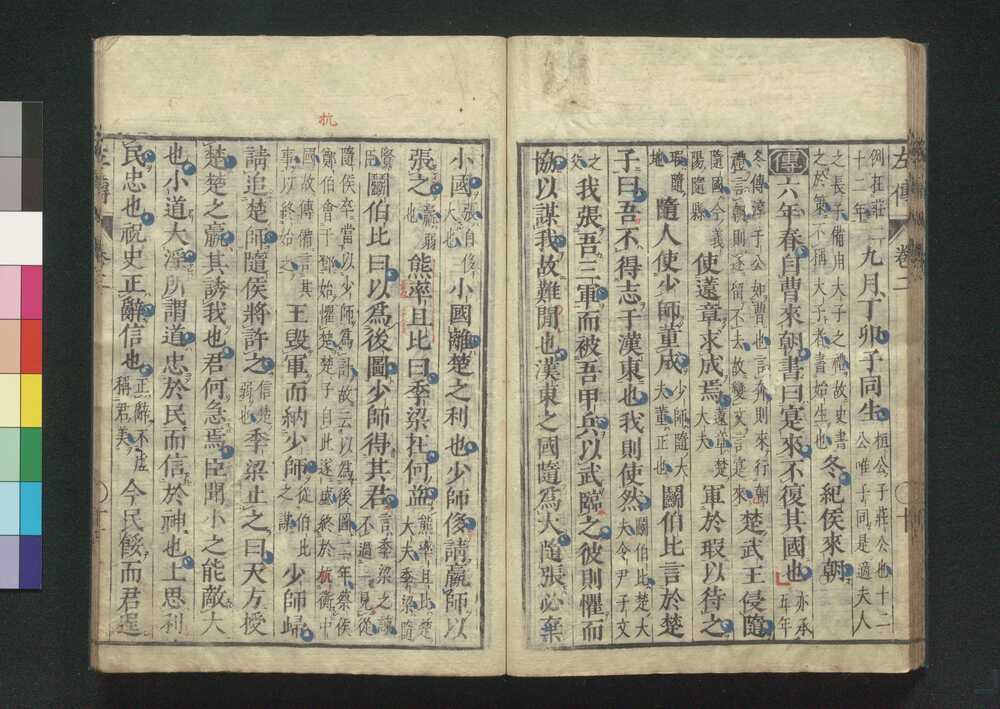 左傳 卷二 十
例在莊二十二年九月丁卯子同生桓公子莊公也十二公唯子同是適夫人
之長子備用大子之禮故史書之於策不稱大子者書始生也冬紀侯來朝
傳六年春自曹來朝書曰寔來不復其國也亦承五年
冬傳淳于公如曹也言奔則來行朝禮言朝則遂留不去故變文言寔來楚武王侵隨
隨國今義陽隨縣使薳章求成焉薳章楚大夫軍於瑕以待之
瑕隨地隨人使少師董成少師隨大夫董正也鬬伯比言於楚
子曰吾不得志于漢東也我則使然鬬伯比楚大夫令尹子文
之父我張吾三軍而被吾甲兵以武臨之彼則懼而
協以謀我故難閒也漢東之國隨爲大隨張必棄
小國張自侈大也小國離楚之利也少師侈請羸師以
張之羸弱也熊率且比曰季梁在何益熊率且比楚大夫季梁隨
賢臣鬬伯比曰以爲後圖少師得其君言季梁之諫不過一見從
抗
隨侯卒當以少師爲計故云以爲後圖二年蔡侯鄭伯會于鄧始懼楚楚子自此遂盛終於抗衡中
國故傳備言其事以終始之王毀軍而納少師從伯比之謀少師歸
請追楚師隨侯將許之信楚弱也季梁止之曰天方授
楚楚之羸其誘我也君何急焉臣聞小之能敵大
也小道大淫所謂道忠於民而信於神也上思利
民忠也祝史正辭信也正辭不虛稱君美今民餒而君逞
左傳 卷二